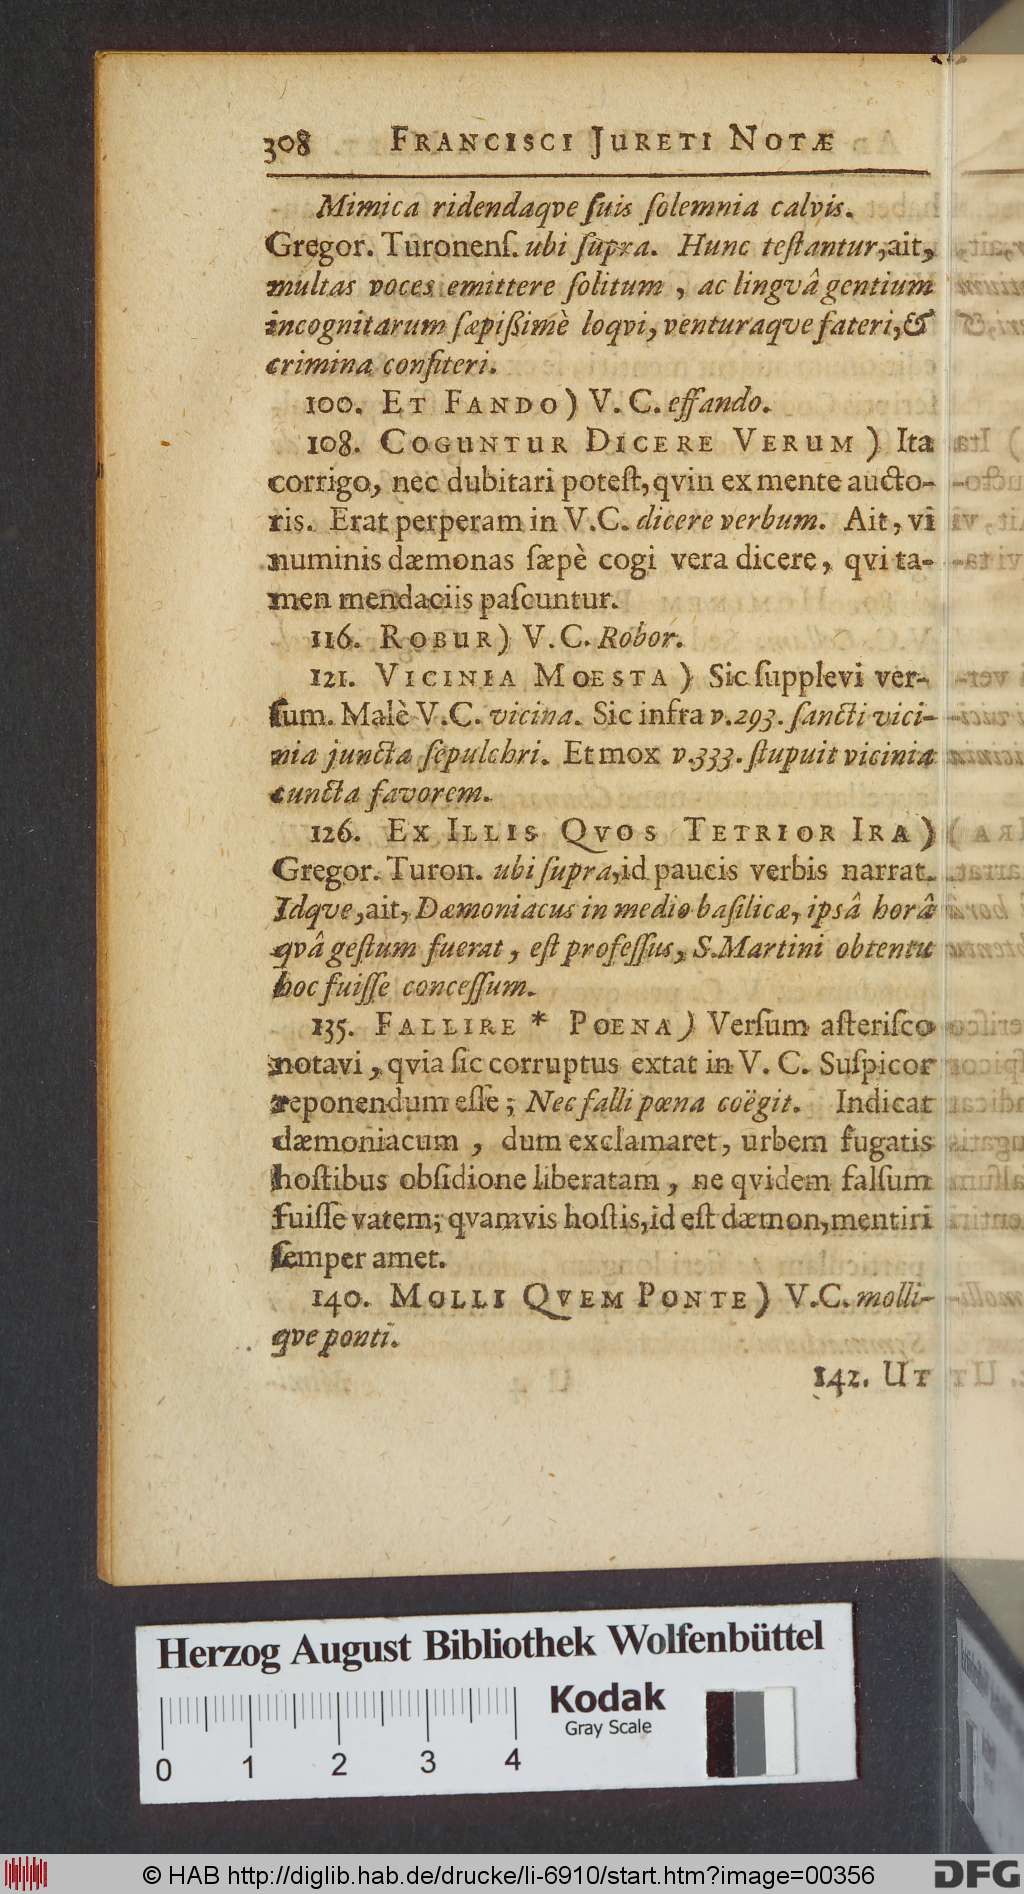 308 FRANCISCI JURETI NOTÆ
Mimica ridendaqve ſuis ſolemnia calvis.
Gregor. Turonenſ. ubi ſupra. Hunc teſtantur, ait,
multas voces emittere ſolitum, ac lingvâ gentium
incognitarum ſæpißimè loqvi, venturaqve fateri, &
crimina confiteri.
100. ET FANDO) V. C. effando.
108. COGUNTUR DICERE VERUM) Ita
corrigo, nec dubitari poteſt, qvin ex mente aucto-
ris. Erat perperam in V.C. dicere verbum. Ait, vi
numinis dæmonas ſæpè cogi vera dicere, qvi ta-
men mendaciis paſcuntur.
116. ROBUR) V.C. Robor.
121. VICINIA MOESTA) Sic ſupplevi ver-
ſum. Malè V.C. vicina. Sic infra v.293. ſancti vici-
nia juncta ſepulchri. Et mox v.333. ſtupuit vicinia
cuncta favorem.
126. EX ILLIS QVOS TETRIOR IRA)
Gregor. Turon. ubi ſupra, id paucis verbis narrat.
Idqve, ait, Dæmoniacus in medio baſilicæ, ipsâ horâ
qvâ geſtum fuerat, eſt profeſſus, S. Martini obtentu
hoc fuiſſe conceſſum.
135. FALLIRE * POENA) Verſum aſteriſco
notavi, qvia ſic corruptus extat in V. C. Suſpicor
reponendum eſſe; Nec falli pœna coëgit. Indicat
dæmoniacum, dum exclamaret, urbem fugatis
hoſtibus obſidione liberatam, ne qvidem falſum
fuiſſe vatem; qvamvis hoſtis, id eſt dæmon, mentiri
ſemper amet.
140. MOLLI QVEM PONTE) V.C. molli-
qve ponti.
142. UT
Herzog August Bibliothek Wolfenbüttel
Kodak
Gray Scale
0 1 2 3 4
© HAB http://diglib.hab.de/drucke/li-6910/start.htm?image=00356
DFG